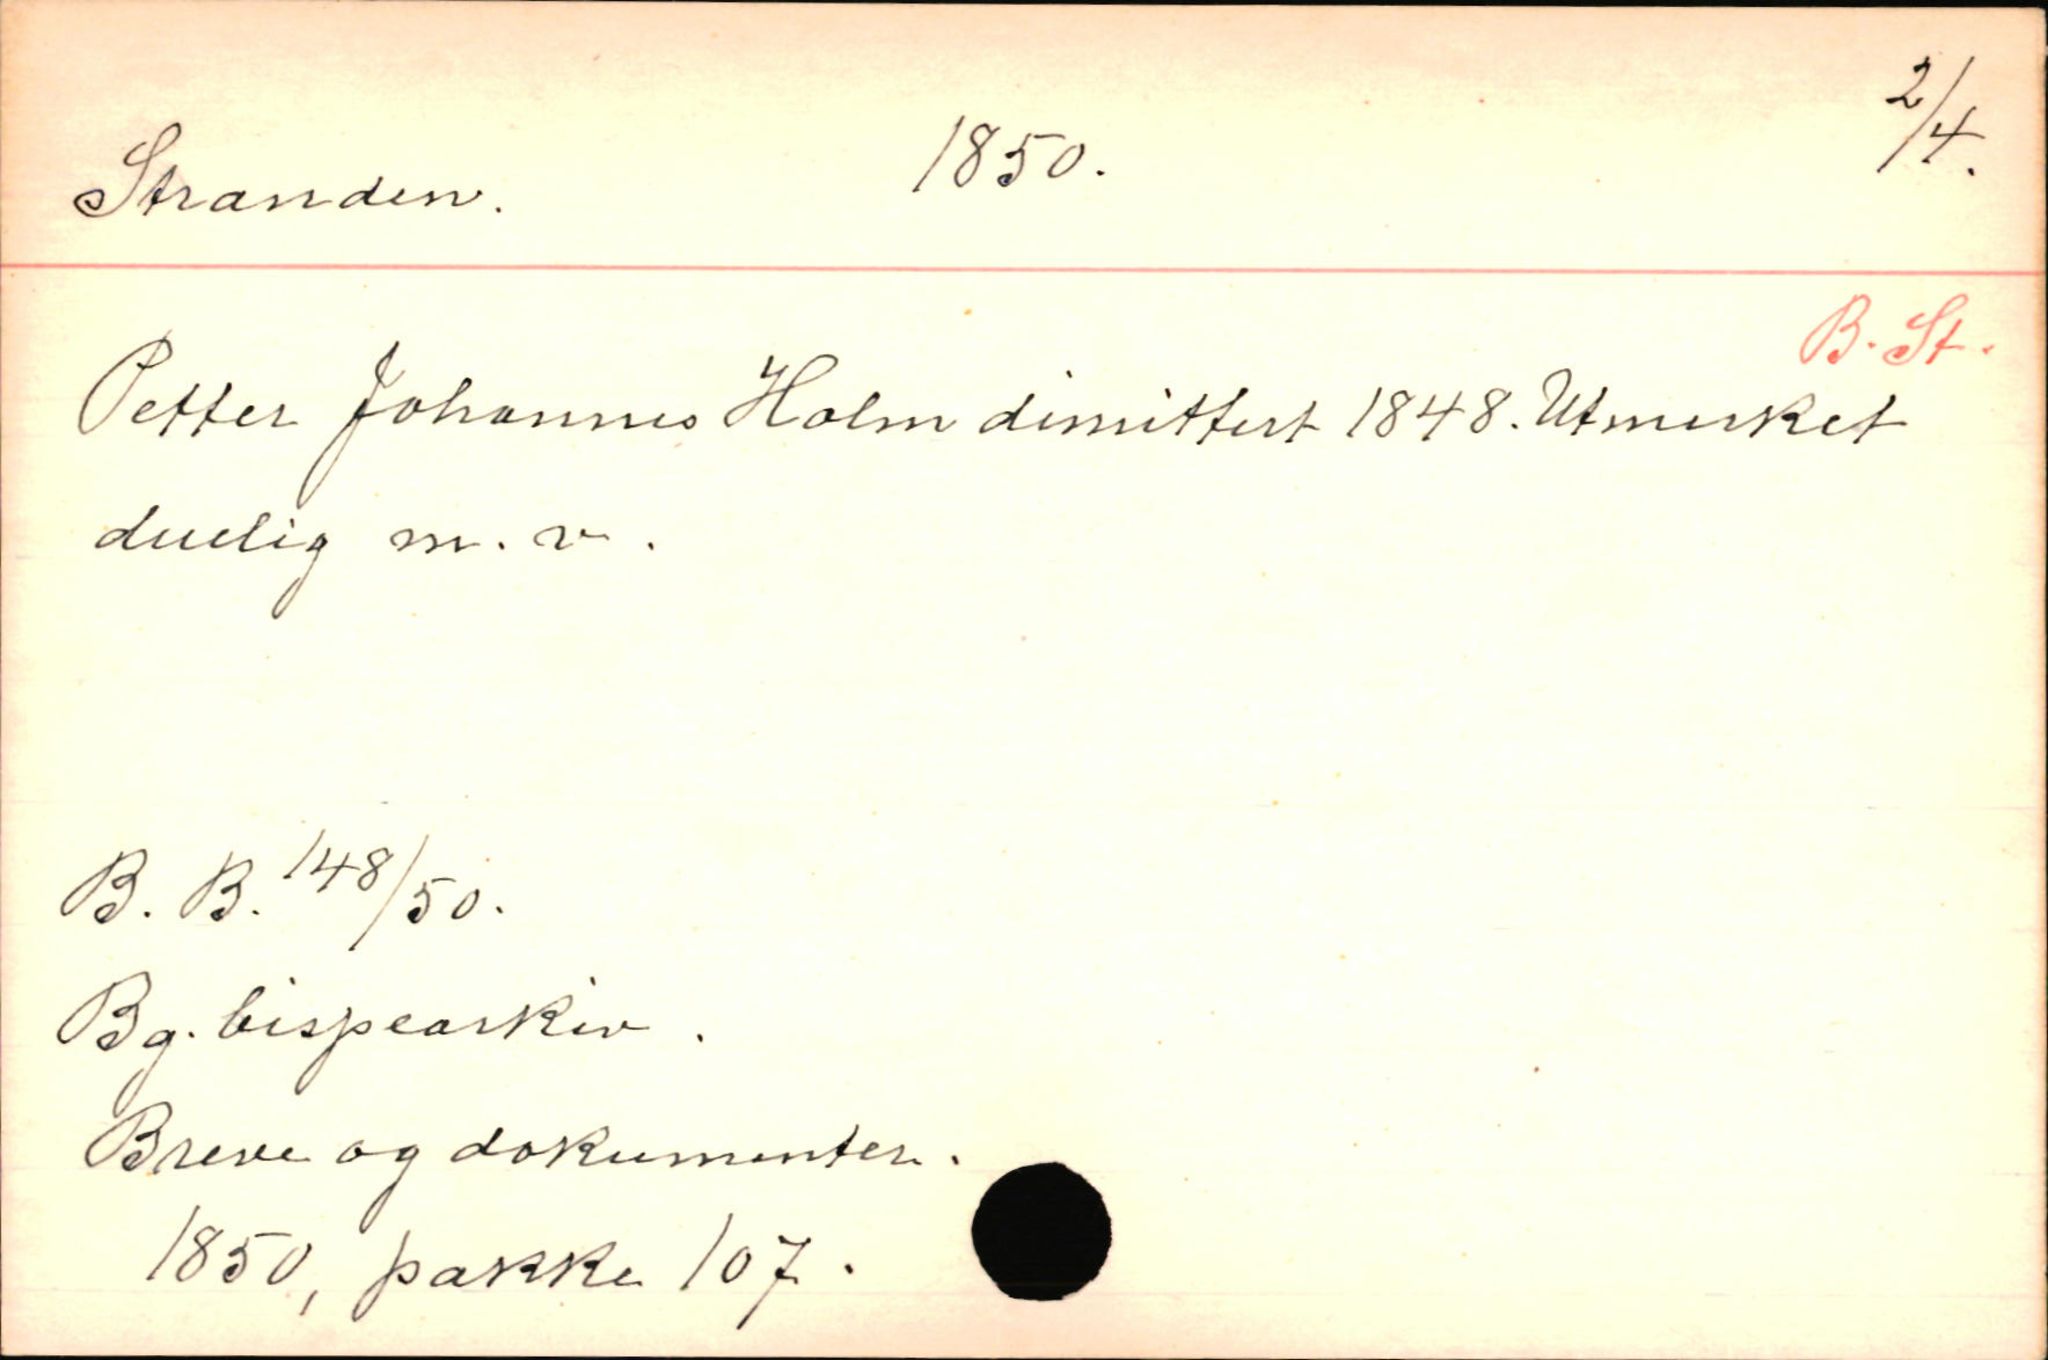 Stranden. 1850. 2/4.
B. St.
Petter Johannes Holm dimittert 1848. Utmerket
duelig m. v.
B. B. 148/50.
Bg. bispearkiv.
Breve og dokumenter.
1850, pakke 107.